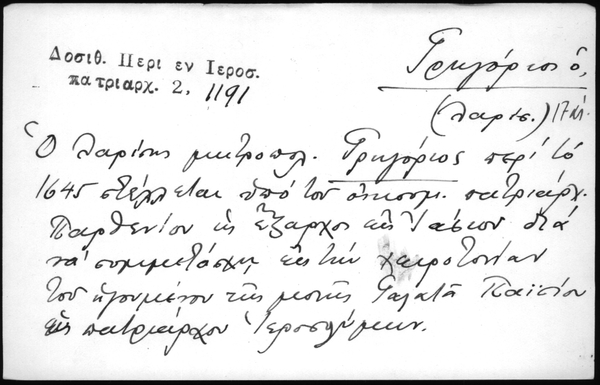 Δοσιθ. Περι εν Ιεροσ.
πατριαρχ. 2, 1191
Γρηγόριος ὁ,
(Λαρίσ.) 17 αἰ.
Ὁ Λαρίσης μητροπολ. Γρηγόριος περί τό
1645 στέλλεται ὑπό τοῦ οἰκουμ. πατριάρχ.
Παρθενίου ὡς Ἔξαρχος εἰς Ἰάσιον διά
νά συμμετάσχῃ εἰς τήν χειροτονίαν
τοῦ ἡγουμένου τῆς μονῆς Γαλατᾶ Παϊσίου
εἰς πατριάρχου Ἱεροσολύμων.